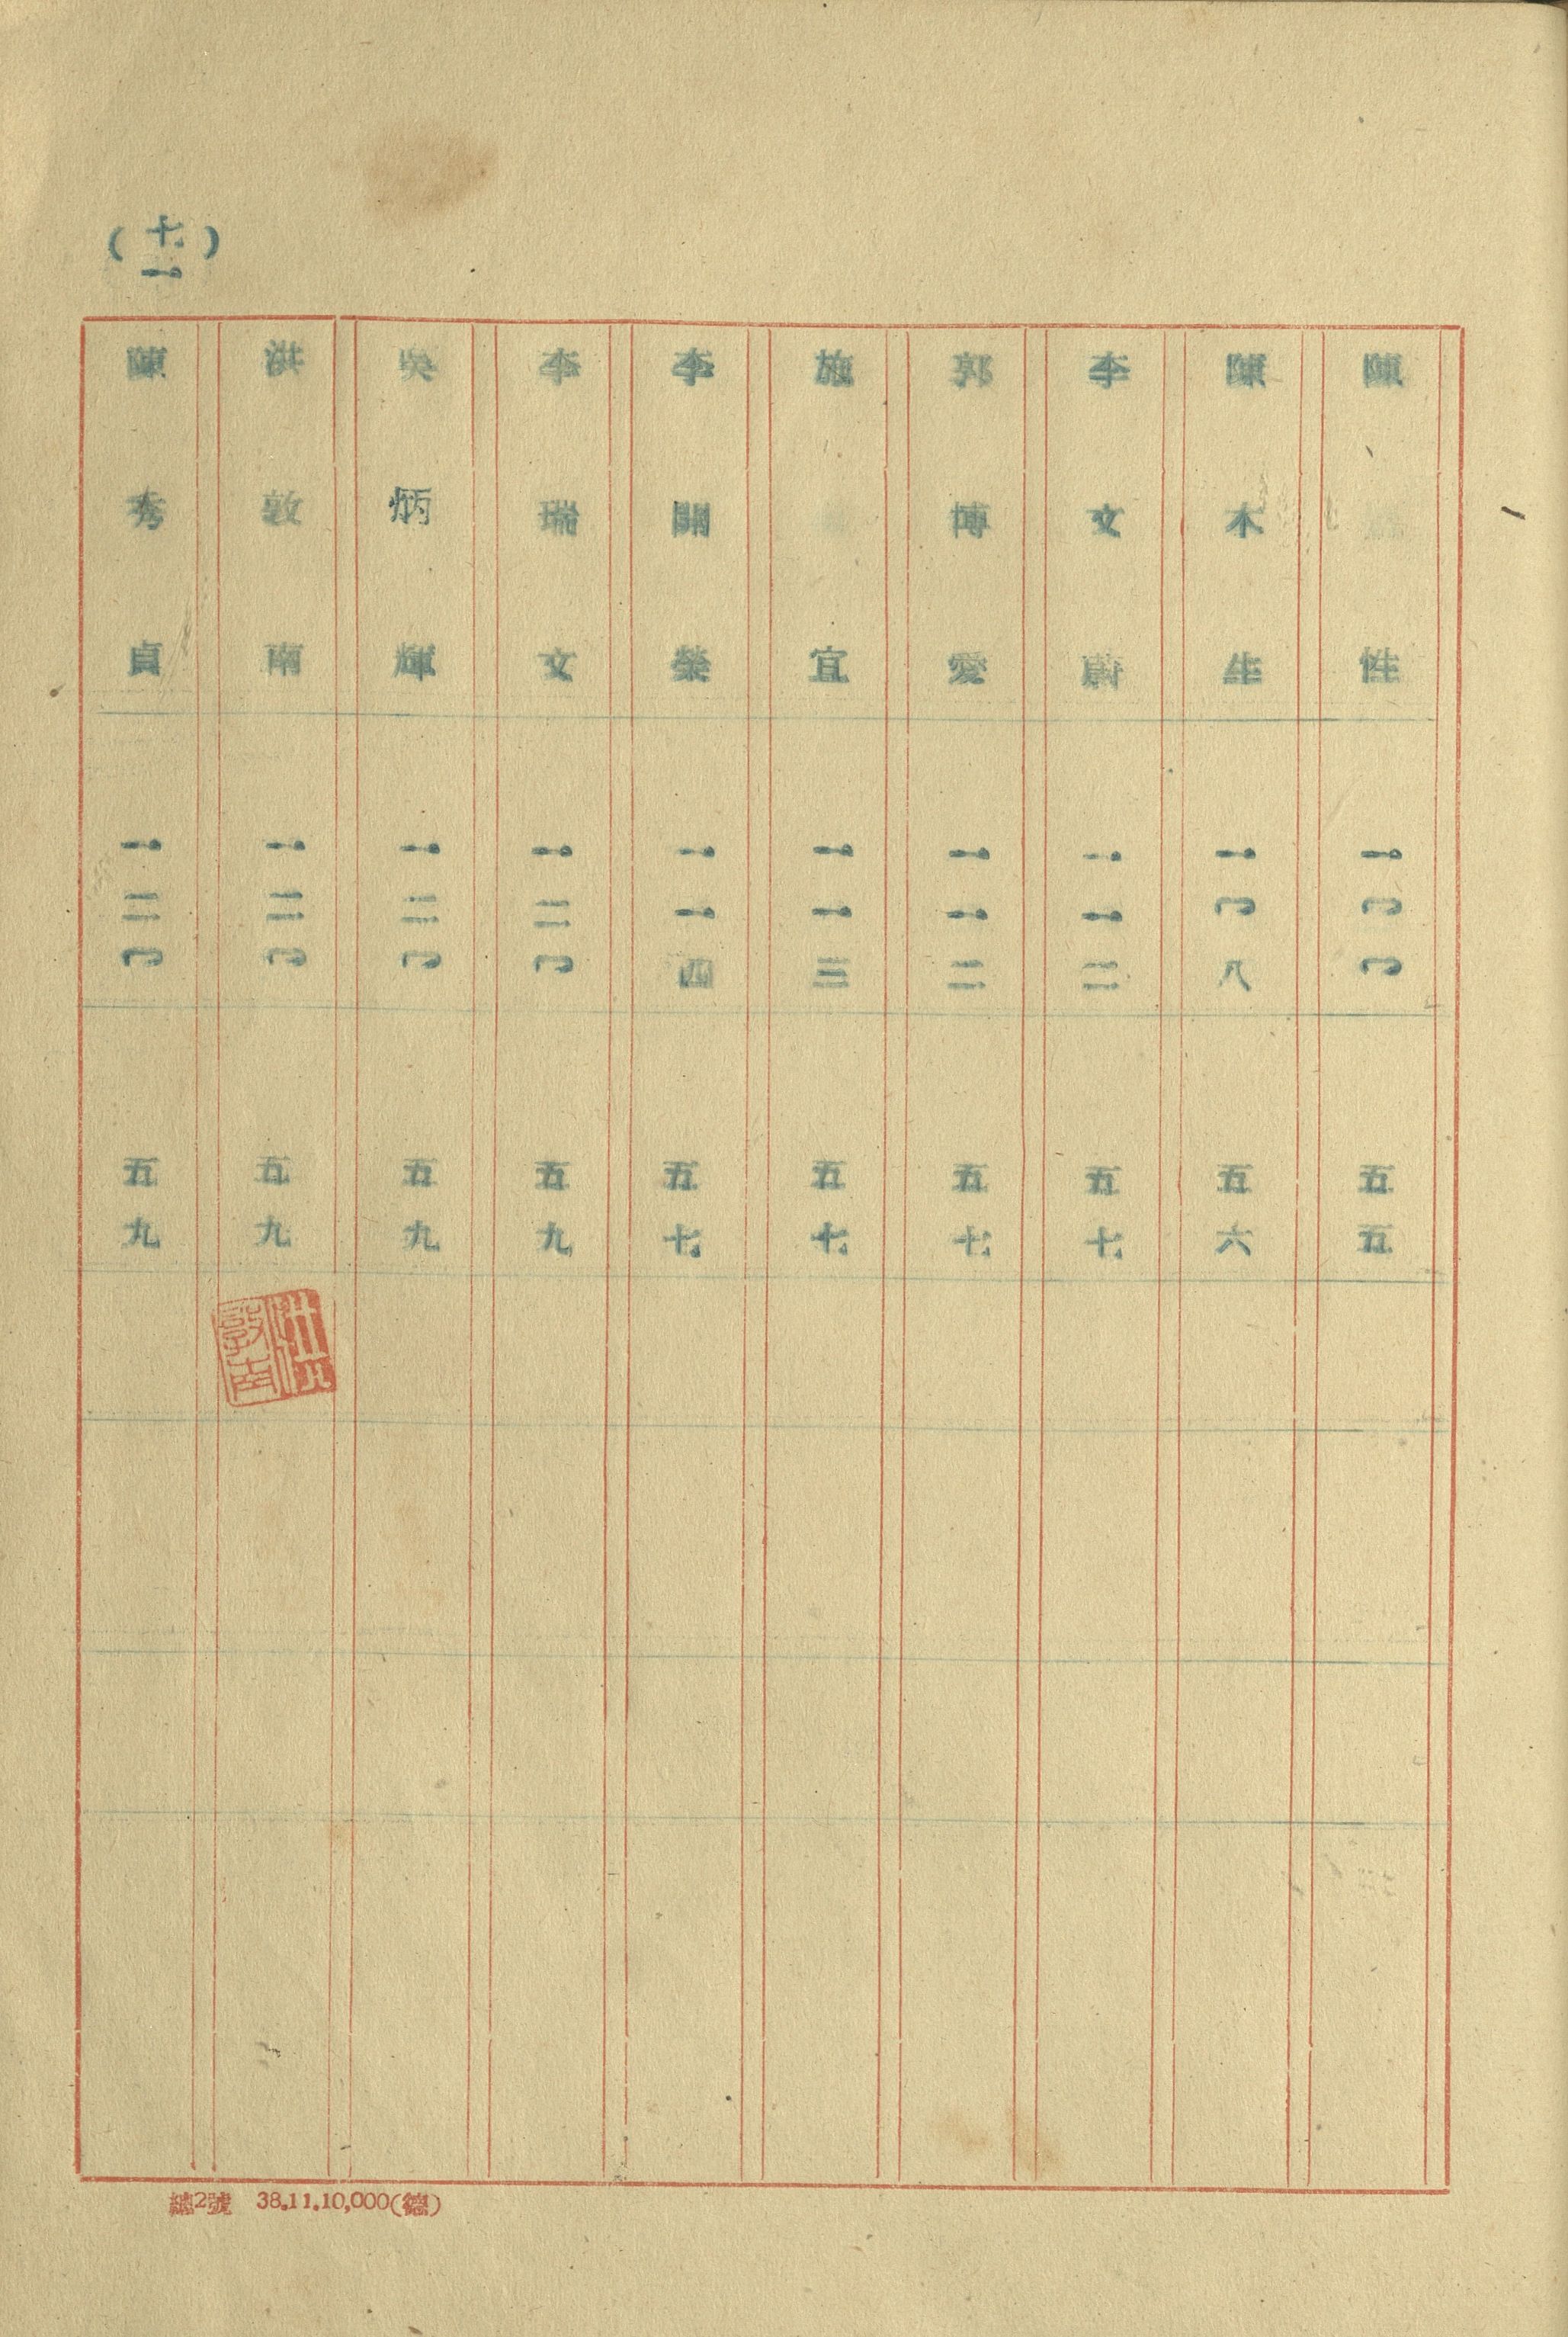 (七一)
陳性 一〇〇 五五
陳木生 一〇八 五六
李文蔚 一一二 五七
郭博愛 一一二 五七
施宜 一一三 五七
李開榮 一一四 五七
李瑞文 一二〇 五九
吳炳輝 一二〇 五九
洪敦南 一二〇 五九
陳秀貞 一二〇 五九
洪敦南印
總2號 38.11.10,000(德)